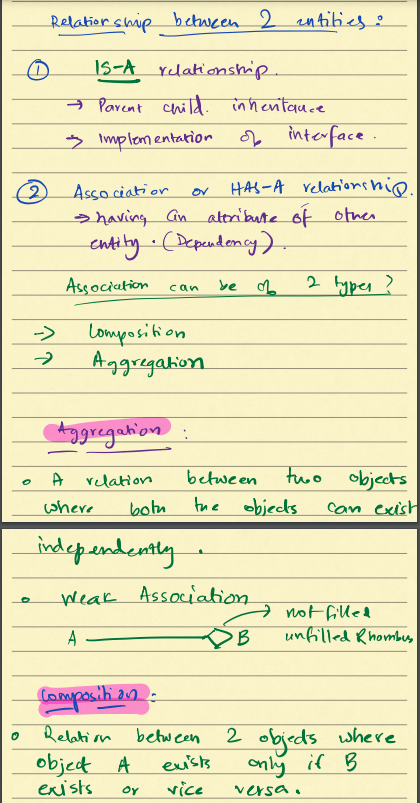 Relationship between 2 entities:
① IS-A relationship.
→ Parent child. inheritance
→ Implementation of interface.
② Association or HAS-A relationship.
→ having an attribute of other
entity. (Dependency).
Association can be of 2 types?
→ Composition
→ Aggregation
Aggregation :
• A relation between two objects
where both the objects can exist
independently.
• Weak Association
→ not filled
A B unfilled Rhombus
Composition:
• Relation between 2 objects where
object A exists only if B
exists or vice versa.